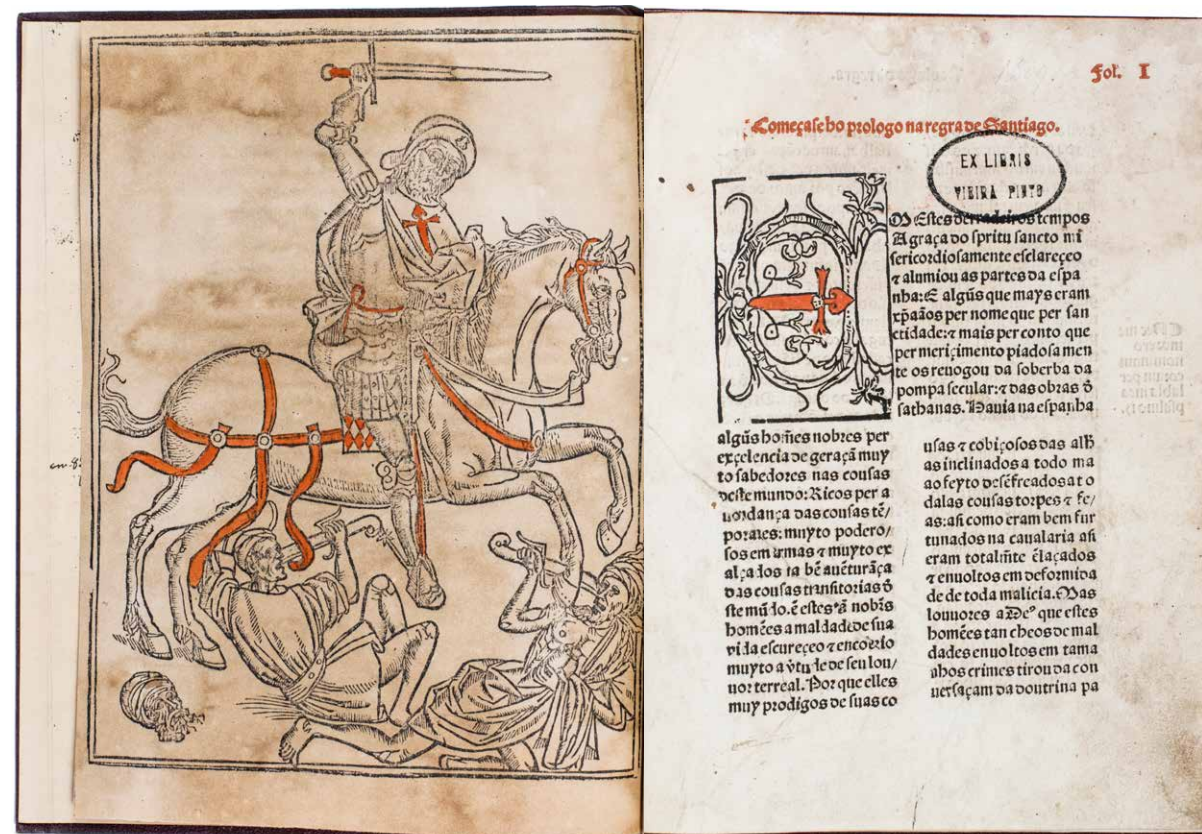 Fol. I
Começase ho prologo na regra de Santiago.
EX LIBRIS
VIEIRA PINTO
Estes derradeiros tempos
A graça do spritu sancto mi
sericordiosamente esclareçeo
⁊ alumiou as partes da espa
nha: E algũs que mays eram
xp̃aãos per nome que per san
ctidade: ⁊ mais per conto que
per mereçimento piadosa men
te os reuogou da soberba da
pompa secular: ⁊ das obras d̃
sathanas. Hauia na espanha
algũs homẽs nobres per
exçelencia de geraçã muy
to sabedores nas cousas
deste mundo: Ricos per a
uondança das cousas tẽ/
poraes: muyto podero/
sos em armas ⁊ muyto ex
alçados na bẽ auẽturãça
das cousas transitorias d̃
ste mũdo. ẽ estes nobr̃s
homẽes a maldade de sua
vida escureçeo ⁊
muyto a ṽtude de seu lou/
uor terreal. Por que elles
muy prodigos de suas co
usas ⁊ cobiçosos das alh
as inclinados a todo ma
ao feyto desẽfreados a t o
dalas cousas torpes ⁊ fe/
as: asi como eram bem fur
tunados na caualaria asi
eram totalm̃te ẽlaçados
⁊ enuoltos em deformida
de de toda malicia. Mas
louuores a De⁹ que estes
homẽes tan cheos de mal
dades enuoltos em tama
nhos crimes tirou da con
uersaçam da doutrina pa